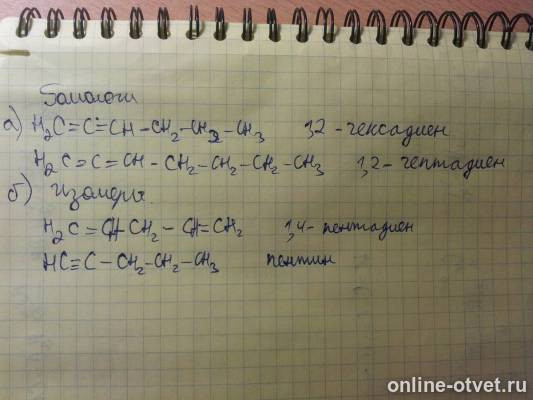 Гомологи
а) H₂C=C=CH-CH₂-CH₂-CH₃ 1,2-гексадиен
H₂C=C=CH-CH₂-CH₂-CH₂-CH₃ 1,2-гептадиен
б) Изомеры.
H₂C=CH-CH₂-CH=CH₂ 1,4-пентадиен
HC≡C-CH₂-CH₂-CH₃ пентин
online-otvet.ru